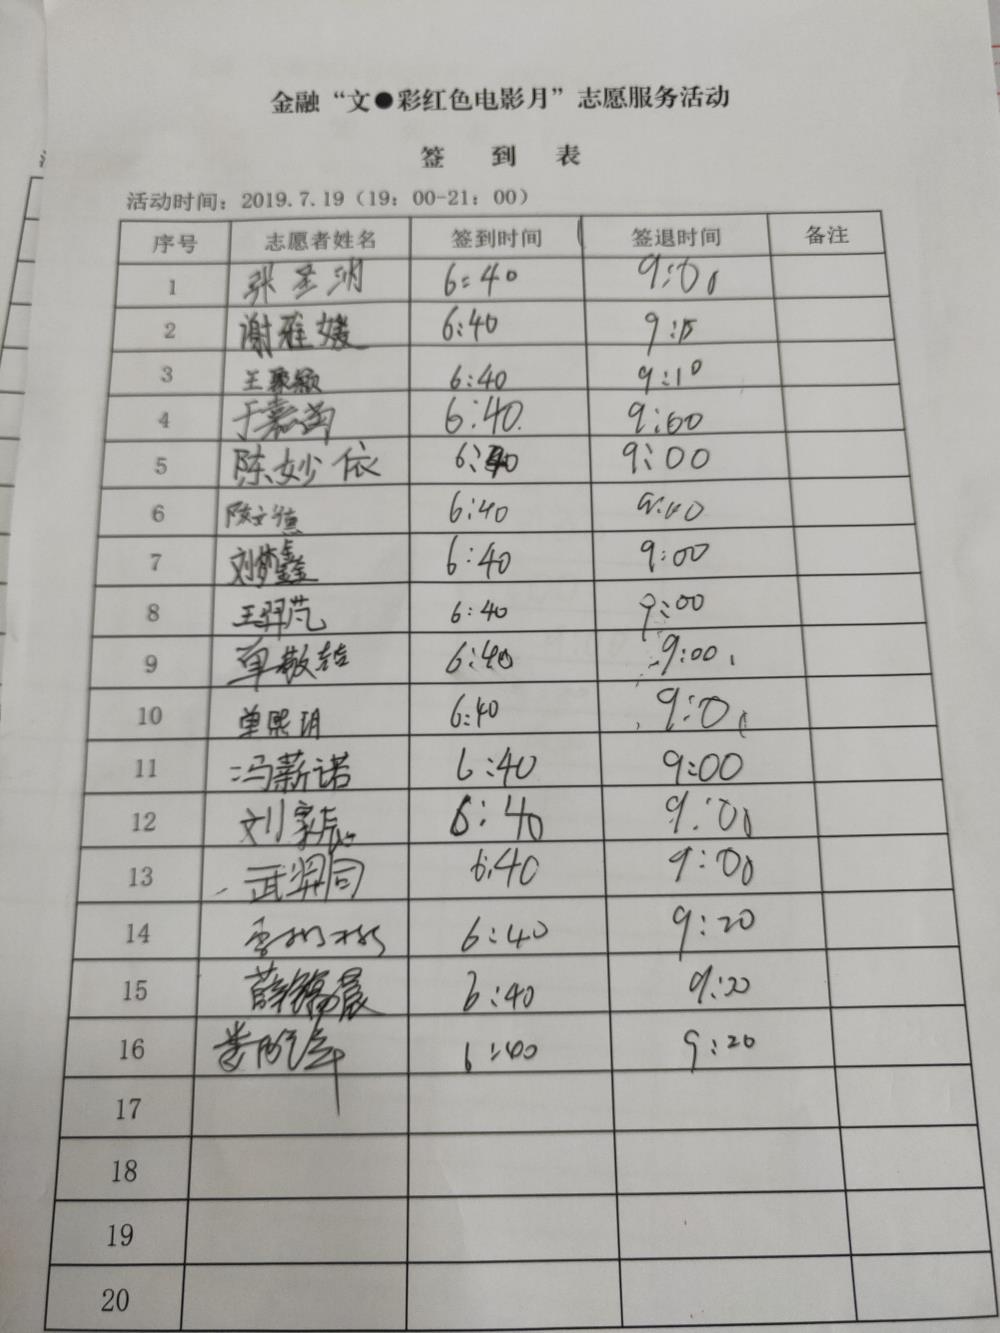 金融“文●彩红色电影月”志愿服务活动
签 到 表
活动时间：2019.7.19（19：00-21：00）
序号 志愿者姓名 签到时间 签退时间 备注
1 张圣洲 6:40 9:00
2 谢雅媛 6:40 9:15
3 王聚颖 6:40 9:10
4 于嘉茵 6:40. 9:00
5 陈妙依 6:40 9:00
6 陈文德 6:40 9:00
7 刘梦鑫 6:40 9:00
8 王羿芃 6:40 9:00
9 单敬喆 6:40 9:00
10 单熙玥 6:40 9:00
11 冯薪诺 6:40 9:00
12 刘家辰 6:40 9:00
13 武羿同 6:40 9:00
14 6:40 9:20
15 薛福晨 6:40 9:20
16 6:40 9:20
17
18
19
20